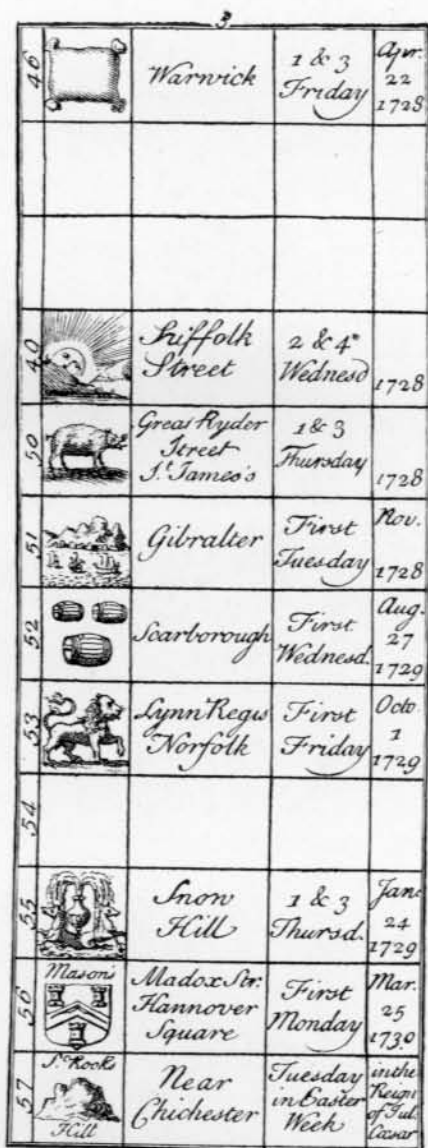 3
46
Warwick
1 & 3
Friday
Apr.
22
1728
40
Suffolk
Street
2 & 4º
Wednesd
1728
50
Great Ryder
Street
St. James's
1 & 3
Thursday
1728
51
Gibralter
First
Tuesday
Nov.
1728
52
Scarborough
First
Wednesd.
Aug.
27
1729
53
Lynn Regis
Norfolk
First
Friday
Octo
1
1729
54
55
Snow
Hill
1 & 3
Thursd.
Jan:
24
1729
56
Mason's
Madox Str:
Hannover
Square
First
Monday
Mar.
25
1730
57
St. Rooks
Hill
Near
Chichester
Tuesday
in Easter
Week
in the
Reign
of Jul.
Cæsar